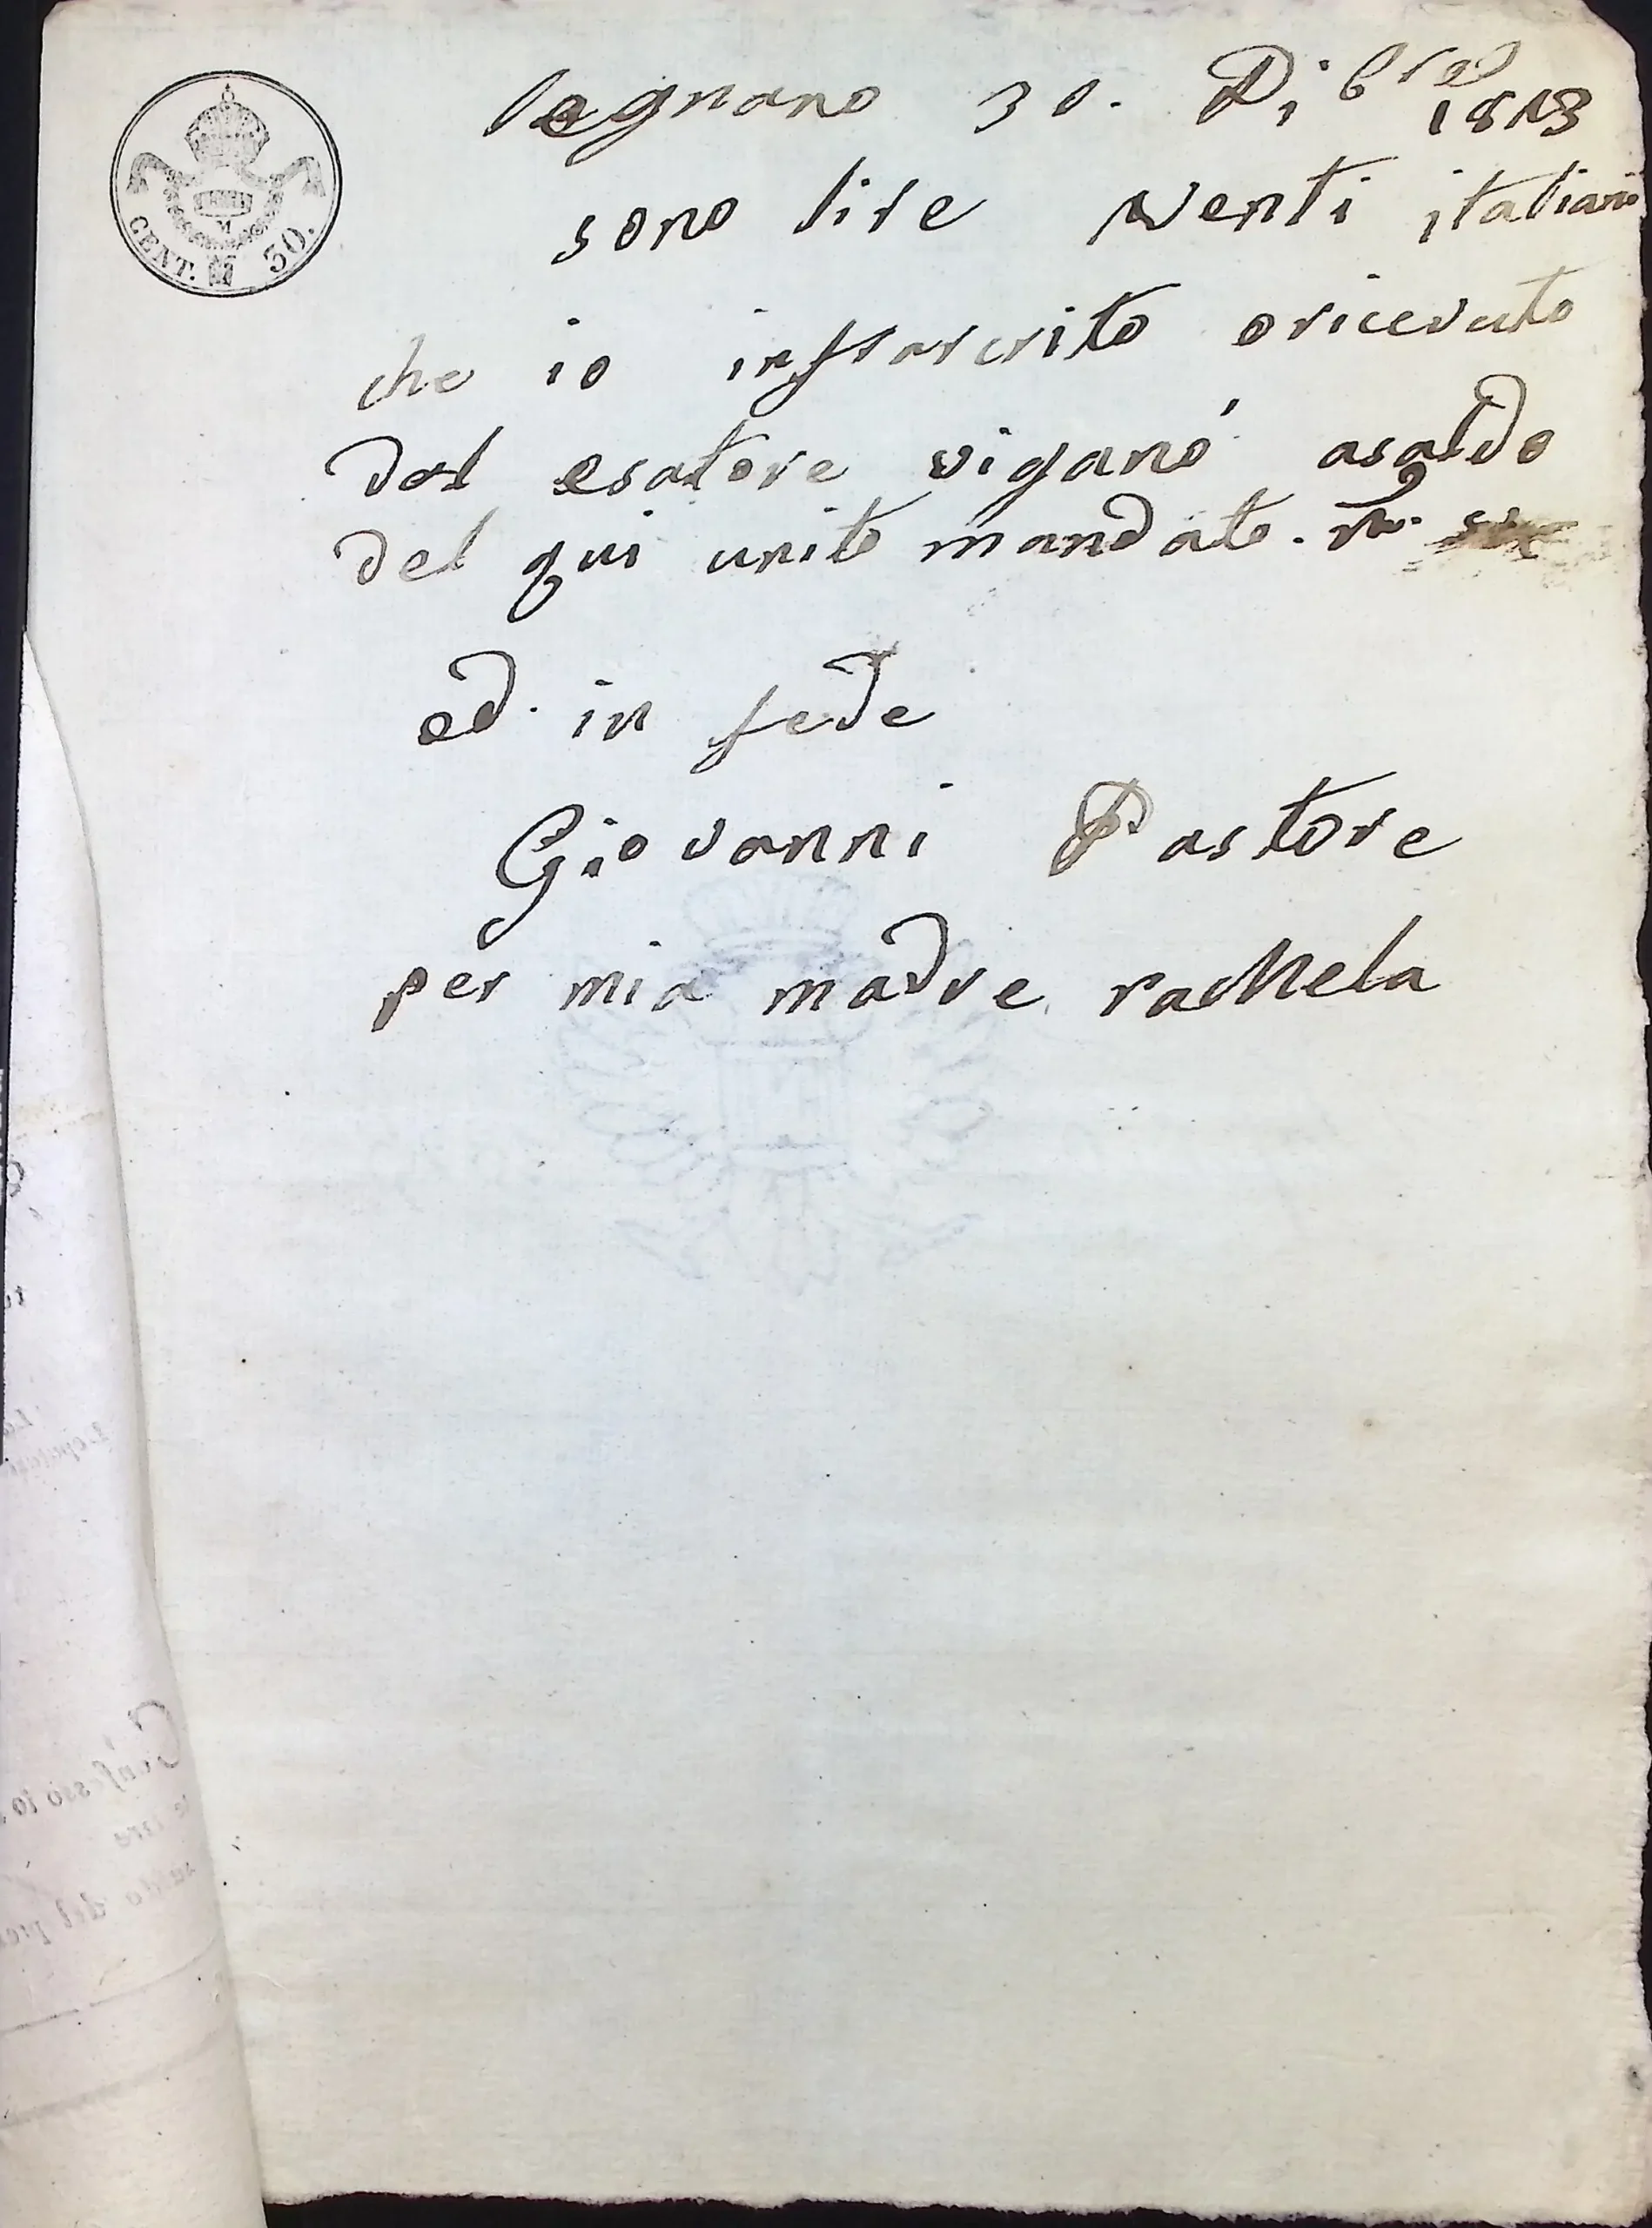 legnano 30. Di.bre 1813
CENT. 50.
sono lire venti italiane
che io infrascrito o ricevuto
dal esatore viganò asaldo
del qui unito mandato. No.
ed. in fede
Giovanni Pastore
per mia madre rachela
Confesso io
saldo del